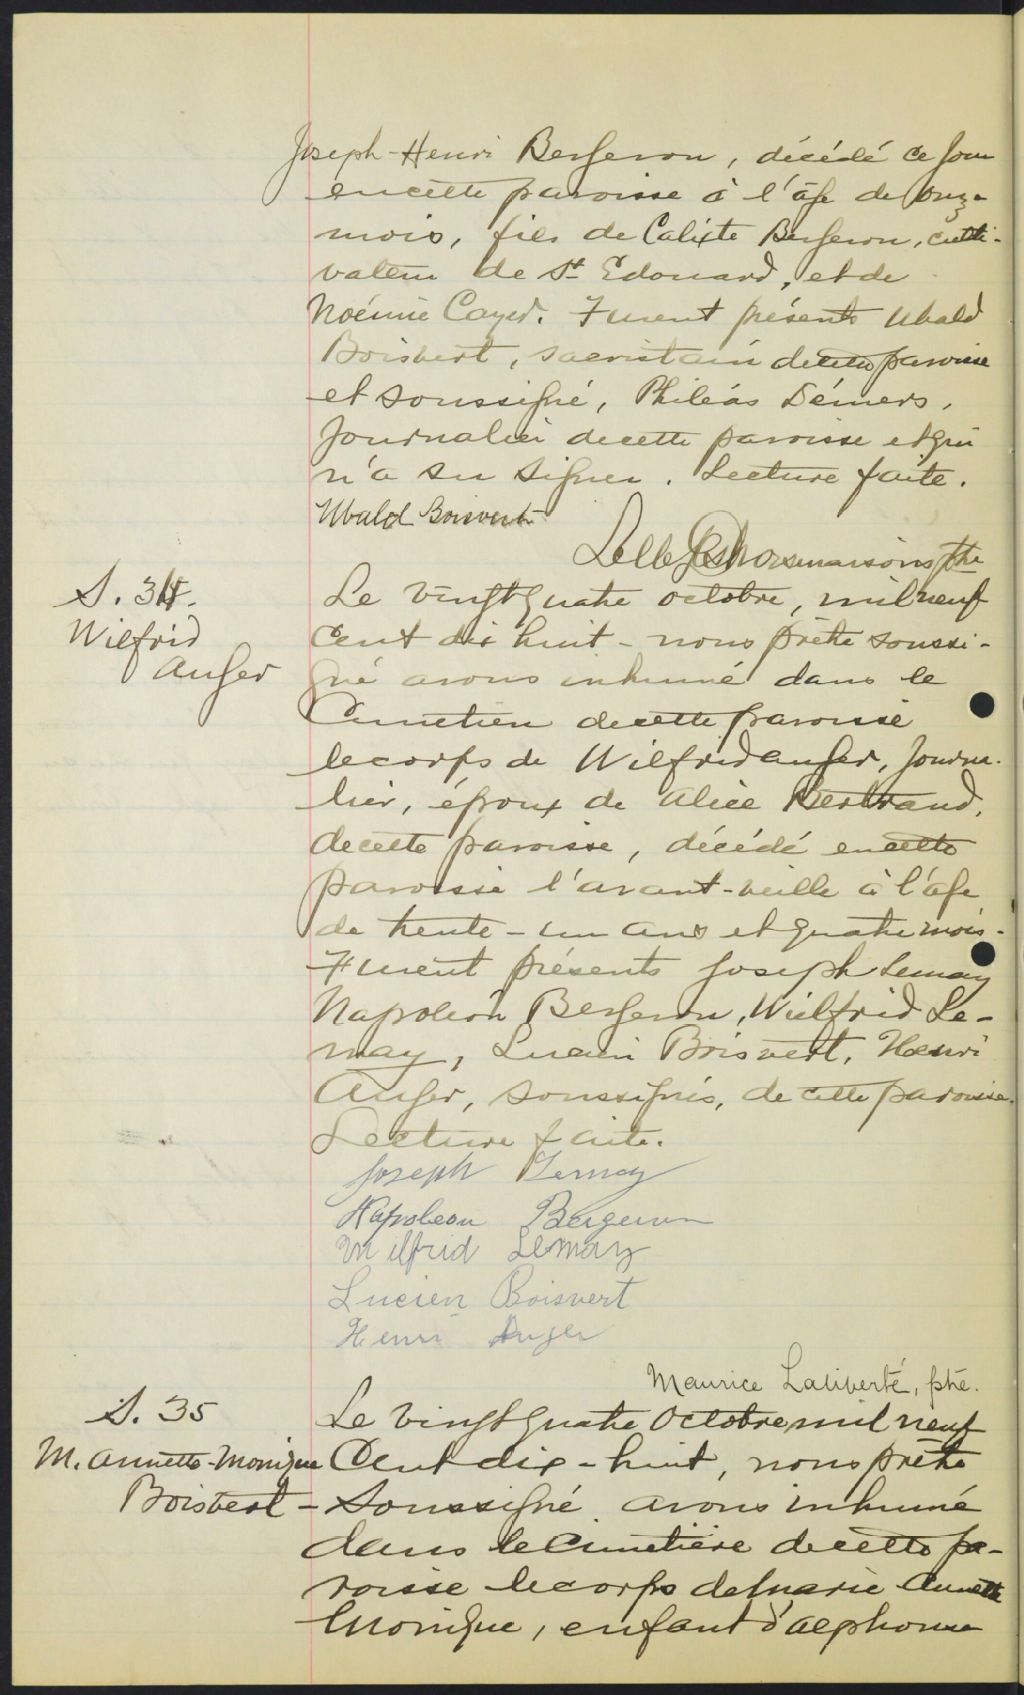 Joseph-Henri Bergeron, décédé ce jour
en cette paroisse à l'âge de onze
mois, fils de Calixte Bergeron, culti-
vateur de St Edouard, et de
Noémie Cayer. Furent présents Ubald
Boisvert, sacristain de cette paroisse
et soussigné, Philéas Démers,
journalier de cette paroisse et qui
n'a su signer. Lecture faite.
Ubald Boisvert
Desmaisons ptre
S. 34.
Wilfrid
Auger
Le vingt quatre octobre, mil neuf
cent dix huit - nous prêtre soussi-
gné avons inhumé dans le
Cimetière de cette paroisse
le corps de Wilfrid Auger, journa-
lier, époux de Alice Bertrand,
de cette paroisse, décédé en cette
paroisse l'avant-veille à l'âge
de trente-un ans et quatre mois.
Furent présents Joseph Lemay
Napoléon Bergeron, Wilfrid Le-
may, Lucien Boisvert, Henri
Auger, soussignés, de cette paroisse.
Lecture faite.
Joseph Lemay
Napoleon Bergeron
Wilfrid Lemay
Lucien Boisvert
Henri Auger
Maurice Laliberté, ptre.
S. 35
M. Annette-Monique
Boisvert -
Le vingt quatre Octobre mil neuf
Cent dix-huit, nous prêtre
Soussigné avons inhumé
dans le Cimetière de cette pa-
roisse le corps de Marie Annette
Monique, enfant d'Alphonse